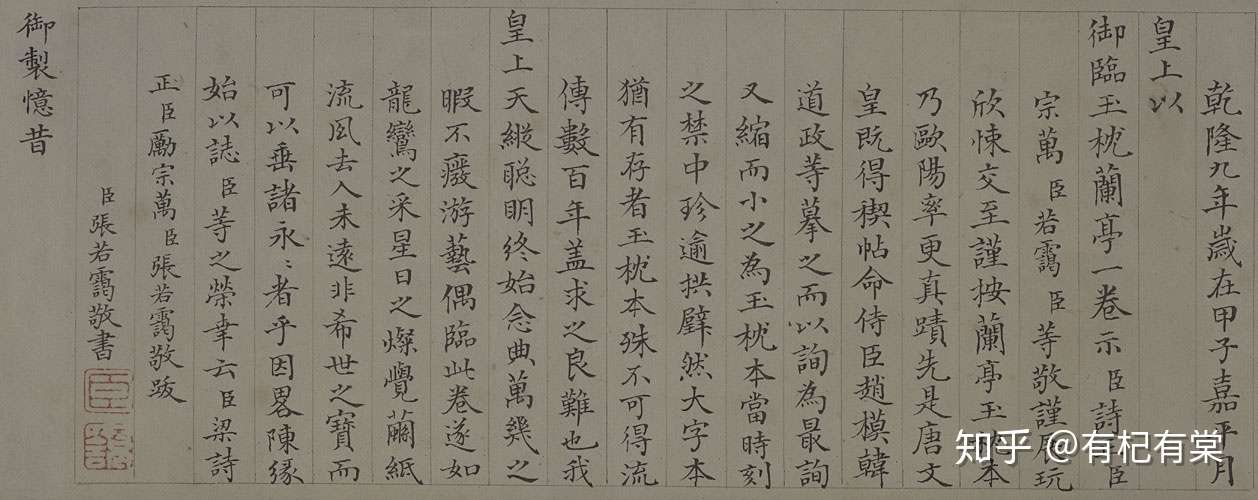 乾隆九年歲在甲子嘉平月
皇上以
御臨玉枕蘭亭一卷示臣詩正臣
宗萬臣若靄臣等敬謹展玩
欣悚交至謹按蘭亭玉枕本
乃歐陽率更真蹟先是唐文
皇既得禊帖命侍臣趙模韓
道政等摹之而以詢為最詢
又縮而小之為玉枕本當時刻
之禁中珍逾拱璧然大字本
猶有存者玉枕本殊不可得流
傳數百年盖求之良難也我
皇上天縱聰明終始念典萬幾之
暇不廢游藝偶臨此卷遂如
龍鸞之采星日之燦覺繭紙
流風去人未遠非希世之寶而
可以垂諸永〻者乎因畧陳緣
始以誌臣等之榮幸云臣梁詩
正臣勵宗萬臣張若靄敬跋
臣張若靄敬書
臣
御製憶昔
知乎 @有杞有棠